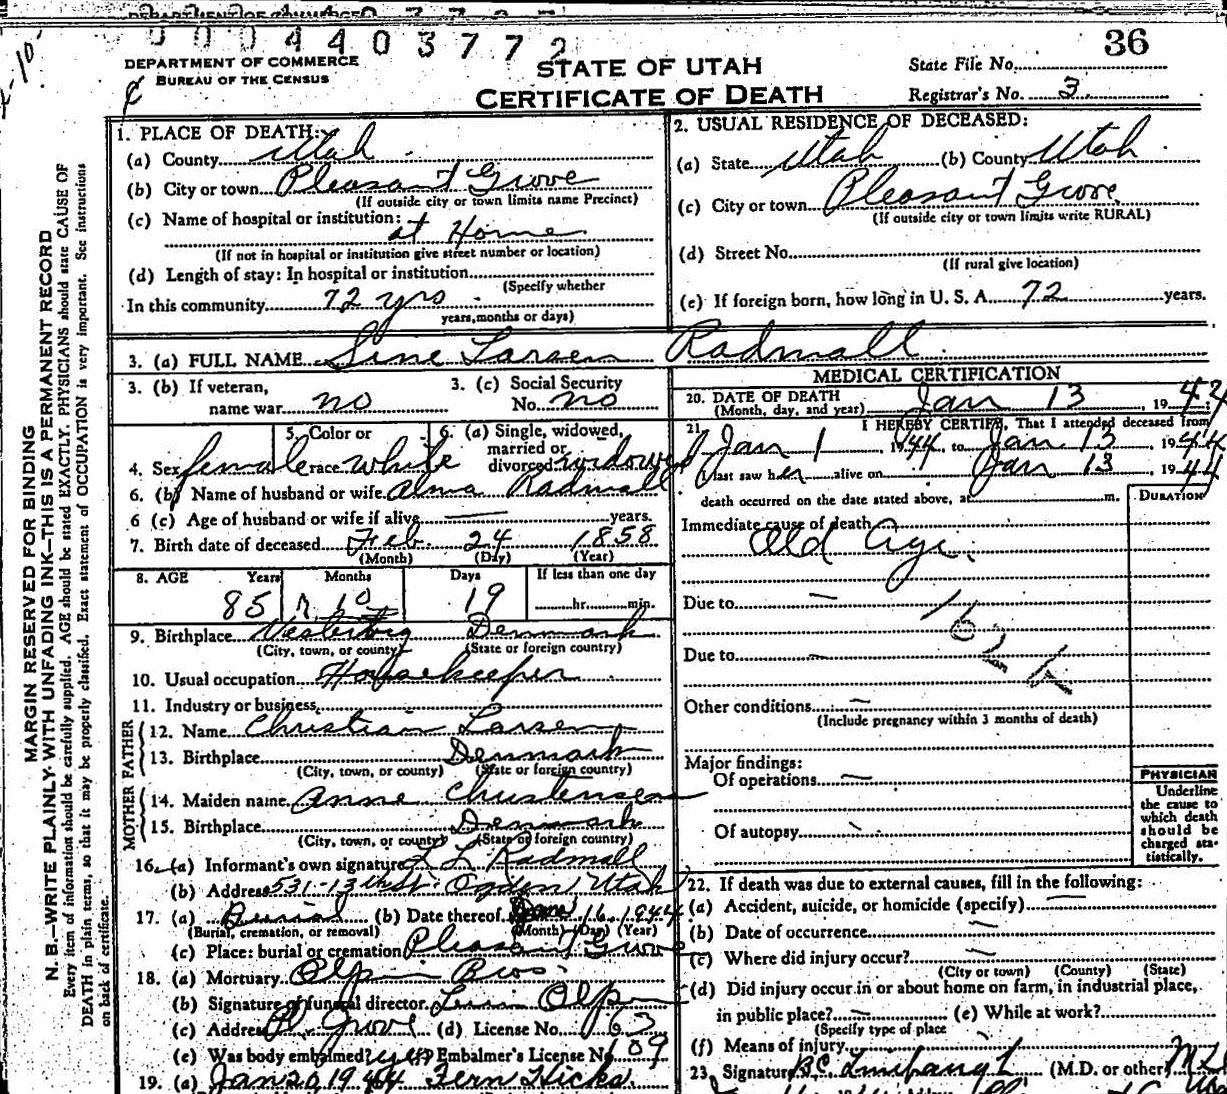 0004403772
36
DEPARTMENT OF COMMERCE
BUREAU OF THE CENSUS
STATE OF UTAH
CERTIFICATE OF DEATH
State File No.
Registrar's No. 3
MARGIN RESERVED FOR BINDING
N. B.—WRITE PLAINLY WITH UNFADING INK—THIS IS A PERMANENT RECORD
Every item of information should be carefully supplied. AGE should be stated EXACTLY. PHYSICIANS should state CAUSE OF
DEATH in plain terms, so that it may be properly classified. Exact statement of OCCUPATION is very important. See instructions
on back of certificate.
1. PLACE OF DEATH:
(a) County Utah
(b) City or town Pleasant Grove
(If outside city or town limits name Precinct)
(c) Name of hospital or institution:
at Home
(If not in hospital or institution give street number or location)
(d) Length of stay: In hospital or institution
(Specify whether
In this community 72 yrs.
years, months or days)
2. USUAL RESIDENCE OF DECEASED:
(a) State Utah (b) County Utah
(c) City or town Pleasant Grove
(If outside city or town limits write RURAL)
(d) Street No.
(If rural give location)
(e) If foreign born, how long in U. S. A. 72 years.
3. (a) FULL NAME Sine Larsen Radmall
3. (b) If veteran,
name war no
3. (c) Social Security
No. no
4. Sex female
5. Color or
race white
6. (a) Single, widowed,
married or
divorced widowed
6. (b) Name of husband or wife Alma Radmall
6 (c) Age of husband or wife if alive — years.
7. Birth date of deceased Feb. 24 1858
(Month) (Day) (Year)
8. AGE Years Months Days If less than one day
85 10 19 hr. min.
9. Birthplace Denmark
(City, town, or county) (State or foreign country)
10. Usual occupation Housekeeper
11. Industry or business
FATHER
12. Name Christian Larsen
13. Birthplace Denmark
(City, town, or county) (State or foreign country)
MOTHER
14. Maiden name Anne Christensen
15. Birthplace Denmark
(City, town, or county) (State or foreign country)
16. (a) Informant's own signature L L Radmall
(b) Address 531-13 Ogden Utah
17. (a) Burial (b) Date thereof Jan 16 1944
(Burial, cremation, or removal) (Month) (Day) (Year)
(c) Place: burial or cremation Pleasant Grove
18. (a) Mortuary Olpin Bros.
(b) Signature of funeral director Olpin
(c) Address Pl. Grove (d) License No.
(e) Was body embalmed? yes (f) Embalmer's License No. 109
19. (a) Jan 20 1944 Fern Hicks
MEDICAL CERTIFICATION
20. DATE OF DEATH
(Month, day, and year) Jan 13, 1944
21. I HEREBY CERTIFY, That I attended deceased from
Jan 1 1944, to Jan 13, 1944
I last saw her alive on Jan 13, 1944
death occurred on the date stated above, at m.
DURATION
Immediate cause of death
Old Age.
Due to —
Due to —
Other conditions —
(Include pregnancy within 3 months of death)
Major findings:
Of operations —
Of autopsy
PHYSICIAN
Underline
the cause to
which death
should be
charged sta-
tistically.
22. If death was due to external causes, fill in the following:
(a) Accident, suicide, or homicide (specify) —
(b) Date of occurrence —
(c) Where did injury occur? —
(City or town) (County) (State)
(d) Did injury occur in or about home on farm, in industrial place,
in public place? — (e) While at work?
(Specify type of place
(f) Means of injury
23. Signature (M.D. or other)